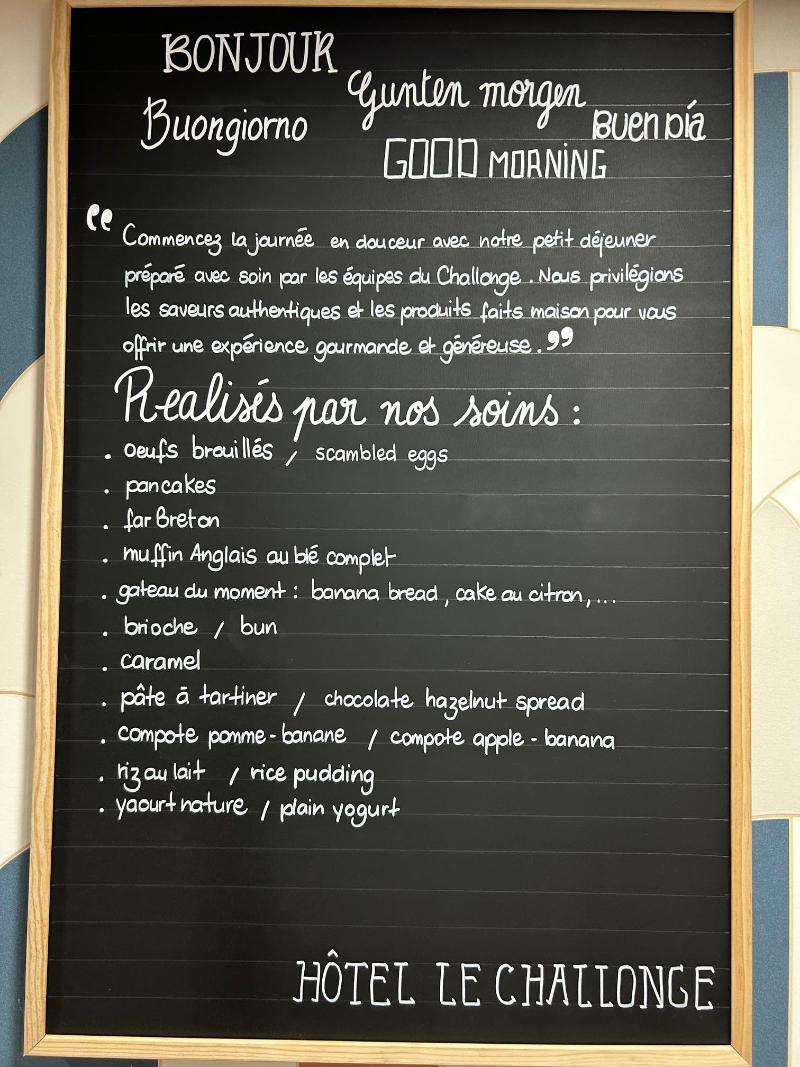 BONJOUR
Gunten morgen
Buongiorno
BUEN DíA
GOOD MORNING
“ Commencez la journée en douceur avec notre petit déjeuner
préparé avec soin par les équipes du Challonge. Nous privilégions
les saveurs authentiques et les produits faits maison pour vous
offrir une expérience gourmande et généreuse. ”
Realisés par nos soins :
. oeufs brouillés / scambled eggs
. pancakes
. far Breton
. muffin Anglais au blé complet
. gateau du moment : banana bread, cake au citron, ...
. brioche / bun
. caramel
. pâte à tartiner / chocolate hazelnut spread
. compote pomme-banane / compote apple-banana
. riz au lait / rice pudding
. yaourt nature / plain yogurt
HÔTEL LE CHALLONGE